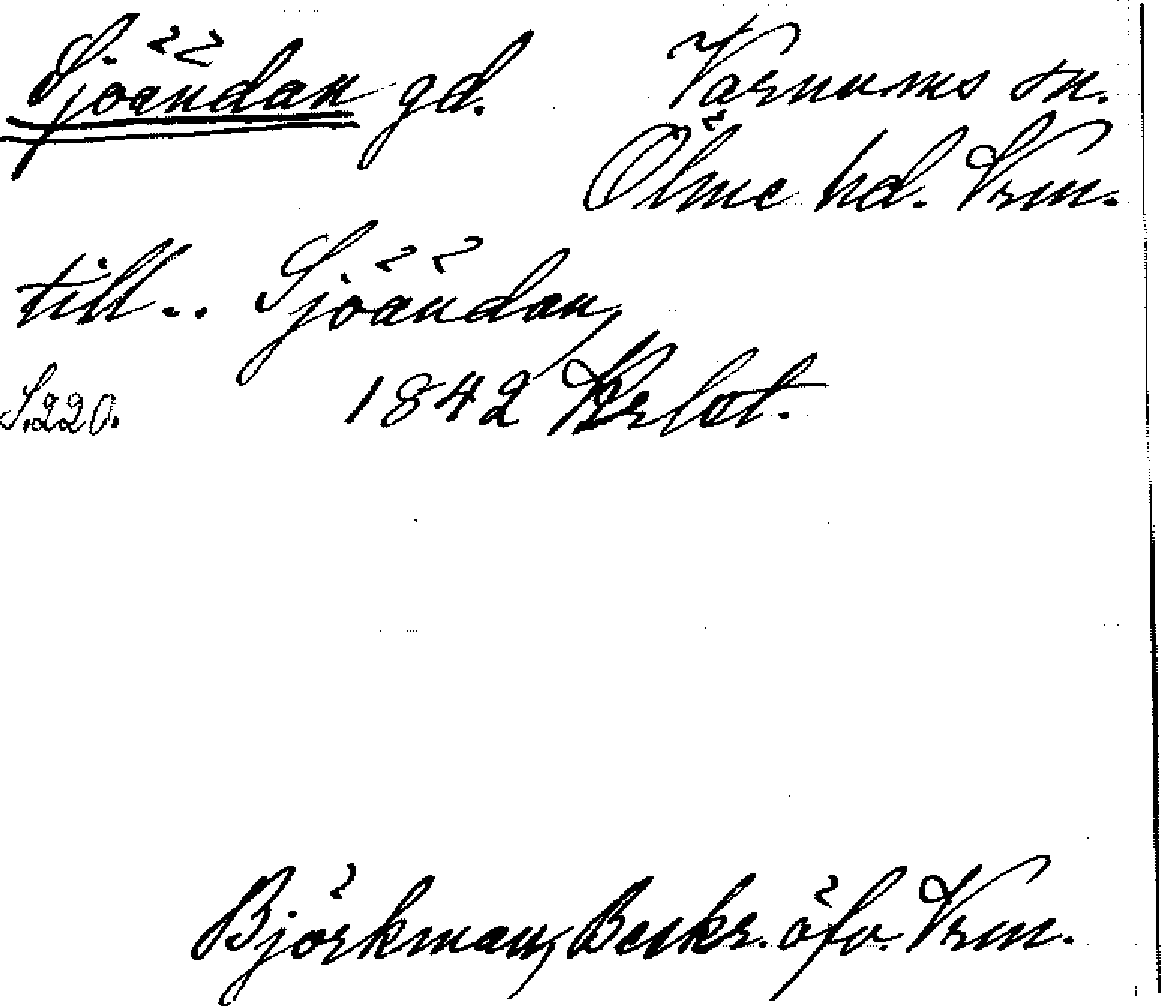 Sjöändan gd. Varnums sn.
Ölme hd. Vrm.
till.. Sjöändan,
S.220. 1842
Björkman, Beskr. öfv. Vrm.